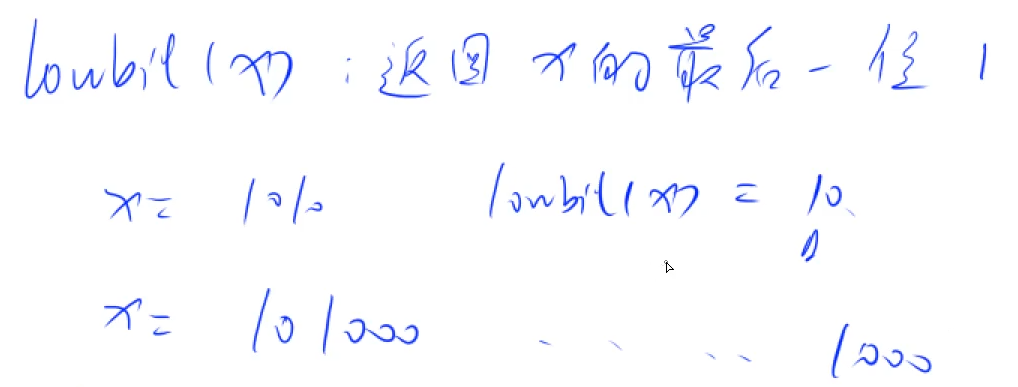 lowbit(x) : 返回 x的最后一位1
x= 1010 lowbit(x) = 10
x= 101000 ..... 1000